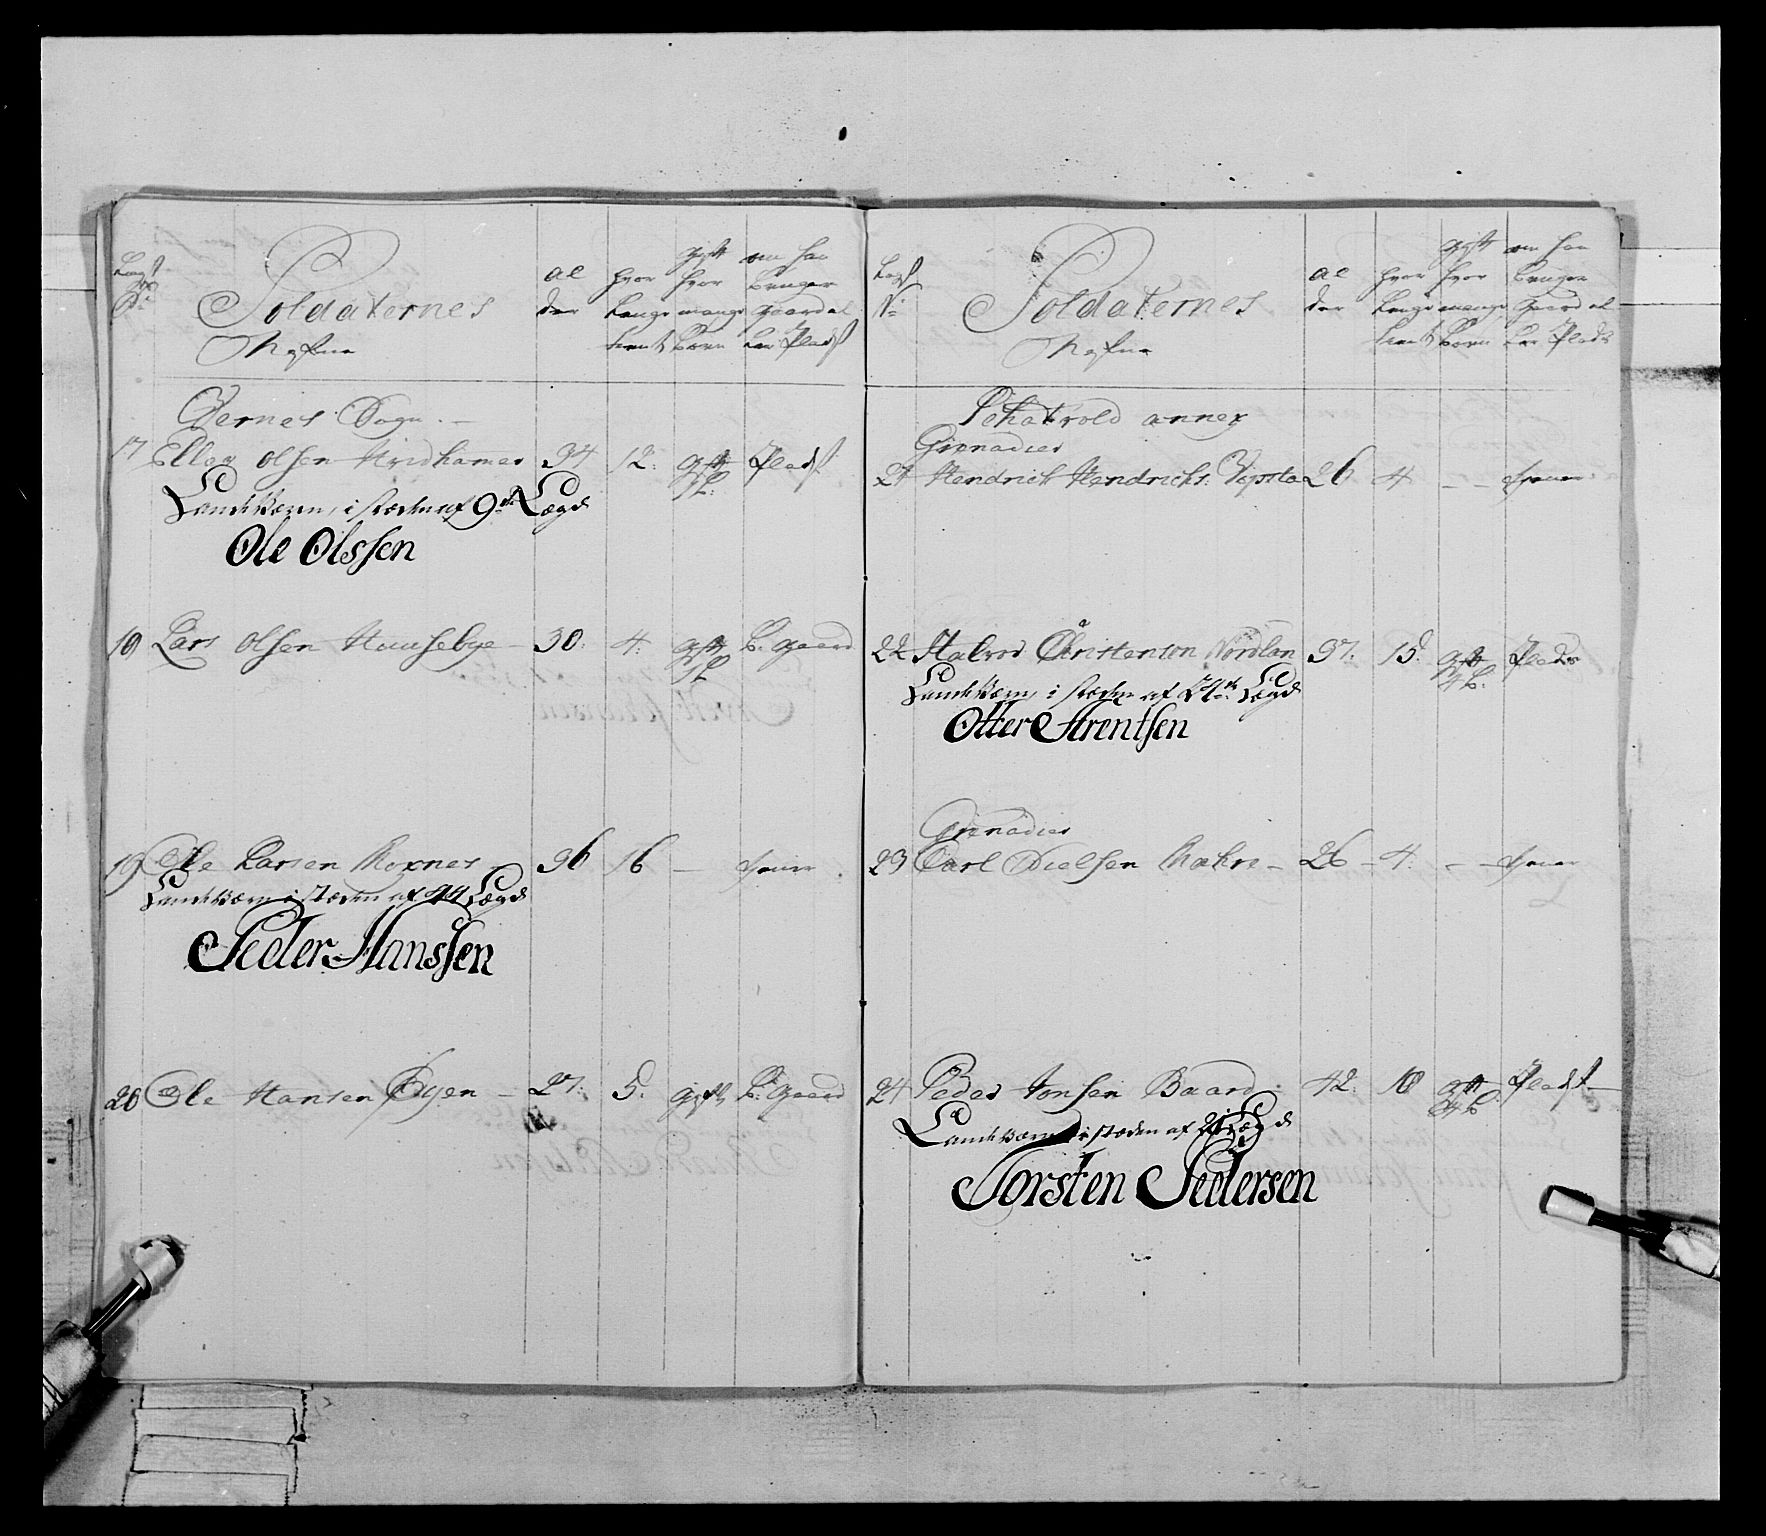 Lægd No
Soldaternes
Nafne
al
der
hvor
lenge
tient
gift
hvor
mange
Børn
om han
bruger
gaard el
ler Plads
Vernes Sogn.
17 Ellev Olsen Hridhamer 34 12: gift Plads
Landværn, i stæden af 9de Lægd
Ole Olssen
18 Lars Olsen Huusebye 30: 4: gift B. gaard
19 Ole Larsen Moxnes 36 16 — tiener
Landværn i stæden af 44 Lægd
Peder Hanssen
20 Ole Hansen Byen — 27: 5. gift B: gaard
Lægd
No
Soldaternes
Nafne
al
der
hvor
lenge
tient
gift
hvor
mange
Børn
om han
bruger
gaard el
ler Plads
Schatvold annex
Grenadier
21 Hendrich Hendrichs. 26 4 — — tiener
22 Halvor Christensen Nordlan 37: 15: gift Plads
4 B:
Landværn, i stæden af Lægd
Otter Arentsen
Grenadier
23 Carl Nielsen — 26 — 4: — — tiener
24 Peder Jonsen Baard 42: 18 gift Plads
Landværn i stæden af Lægd
Torsten Pedersen